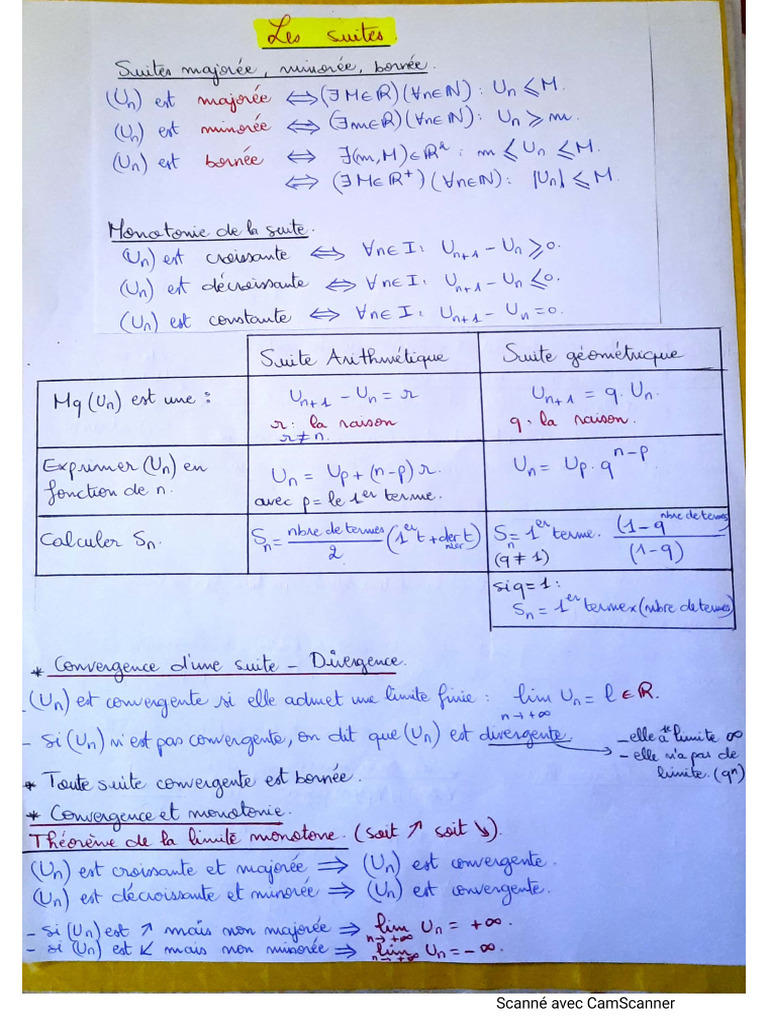 Les suites.
Suites majorée, minorée, bornée.
(Un) est majorée ⟺ (∃M∈ℝ)(∀n∈ℕ): Un ≤ M.
(Un) est minorée ⟺ (∃m∈ℝ)(∀n∈ℕ): Un ≥ m.
(Un) est bornée ⟺ ∃(m,M)∈ℝ²: m ≤ Un ≤ M.
⟺ (∃M∈ℝ⁺)(∀n∈ℕ): |Un| ≤ M.
Monotonie de la suite.
(Un) est croissante ⟺ ∀n∈I: Un+1 − Un ≥ 0.
(Un) est décroissante ⟺ ∀n∈I: Un+1 − Un ≤ 0.
(Un) est constante ⟺ ∀n∈I: Un+1 − Un = 0.
Suite Arithmétique
Suite géométrique
Mq (Un) est une :
Un+1 − Un = r
r: la raison
r≠n.
Un+1 = q. Un.
q. la raison.
Exprimer (Un) en
fonction de n.
Un = Up + (n−p) r.
avec p = le 1er terme.
Un = Up . q^(n−p)
Calculer Sn.
Sn = nbre de termes/2 (1er t + dernier t)
Sn = 1er terme. (1−q^nbre de termes)/(1−q)
(q ≠ 1)
si q = 1:
Sn = 1er terme x (nbre de termes)
* Convergence d'une suite - Divergence.
(Un) est convergente si elle admet une limite finie : lim Un = l ∈ ℝ.
n→+∞
- si (Un) n'est pas convergente, on dit que (Un) est divergente.
- elle a limite ∞
- elle n'a pas de
limite. (qⁿ)
* Toute suite convergente est bornée.
* Convergence et monotonie.
Théorème de la limite monotone. (soit ↗ soit ↘).
(Un) est croissante et majorée ⟹ (Un) est convergente.
(Un) est décroissante et minorée ⟹ (Un) est convergente.
- si (Un) est ↗ mais non majorée ⟹ lim Un = +∞.
n→+∞
- si (Un) est ↙ mais non minorée ⟹ lim Un = −∞.
n→+∞
Scanné avec CamScanner